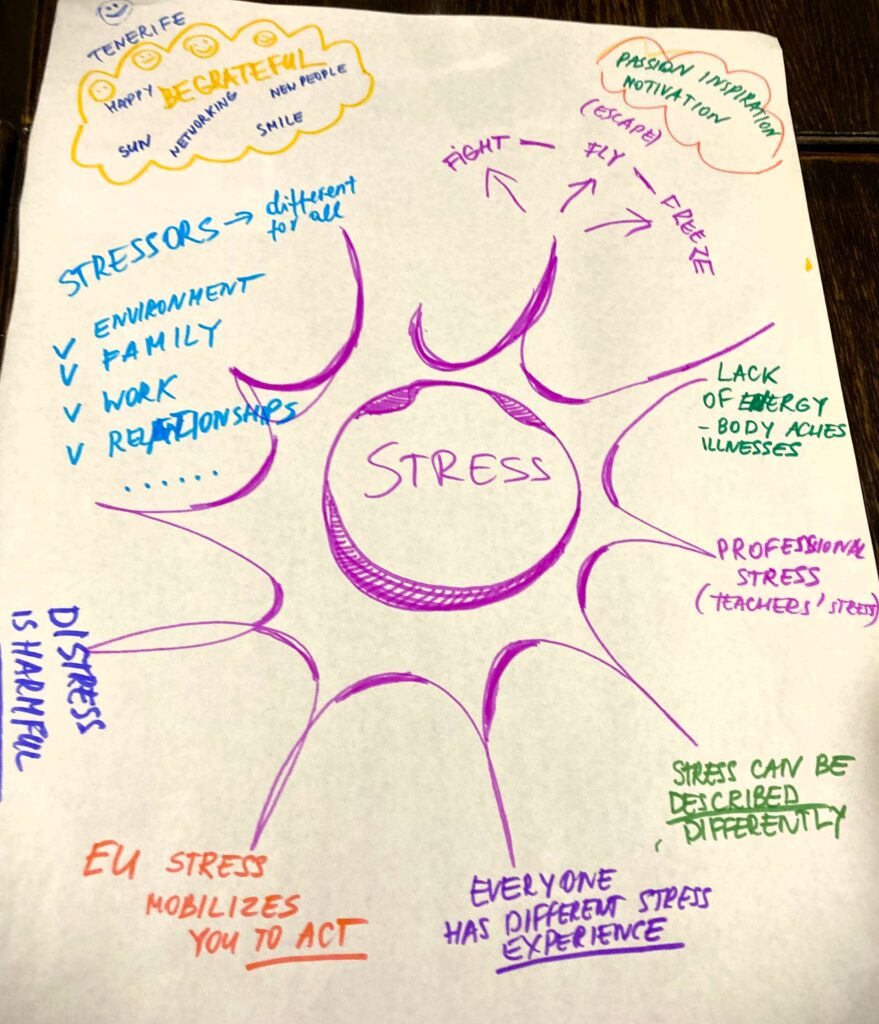 TENERIFE
BE GRATEFUL
HAPPY
NEW PEOPLE
NETWORKING
SUN
SMILE
PASSION INSPIRATION
MOTIVATION
(ESCAPE)
FIGHT — FLY — FREEZE
STRESSORS → different
for all
✓ ENVIRONMENT
✓ FAMILY
✓ WORK
✓ RELATIONSHIPS
......
STRESS
LACK
OF ENERGY
- BODY ACHES
ILLNESSES
PROFESSIONAL
STRESS
(TEACHERS' STRESS)
STRESS CAN BE
DESCRIBED
DIFFERENTLY
EVERYONE
HAS DIFFERENT STRESS
EXPERIENCE
EU STRESS
MOBILIZES
YOU TO ACT
DISTRESS
IS HARMFUL